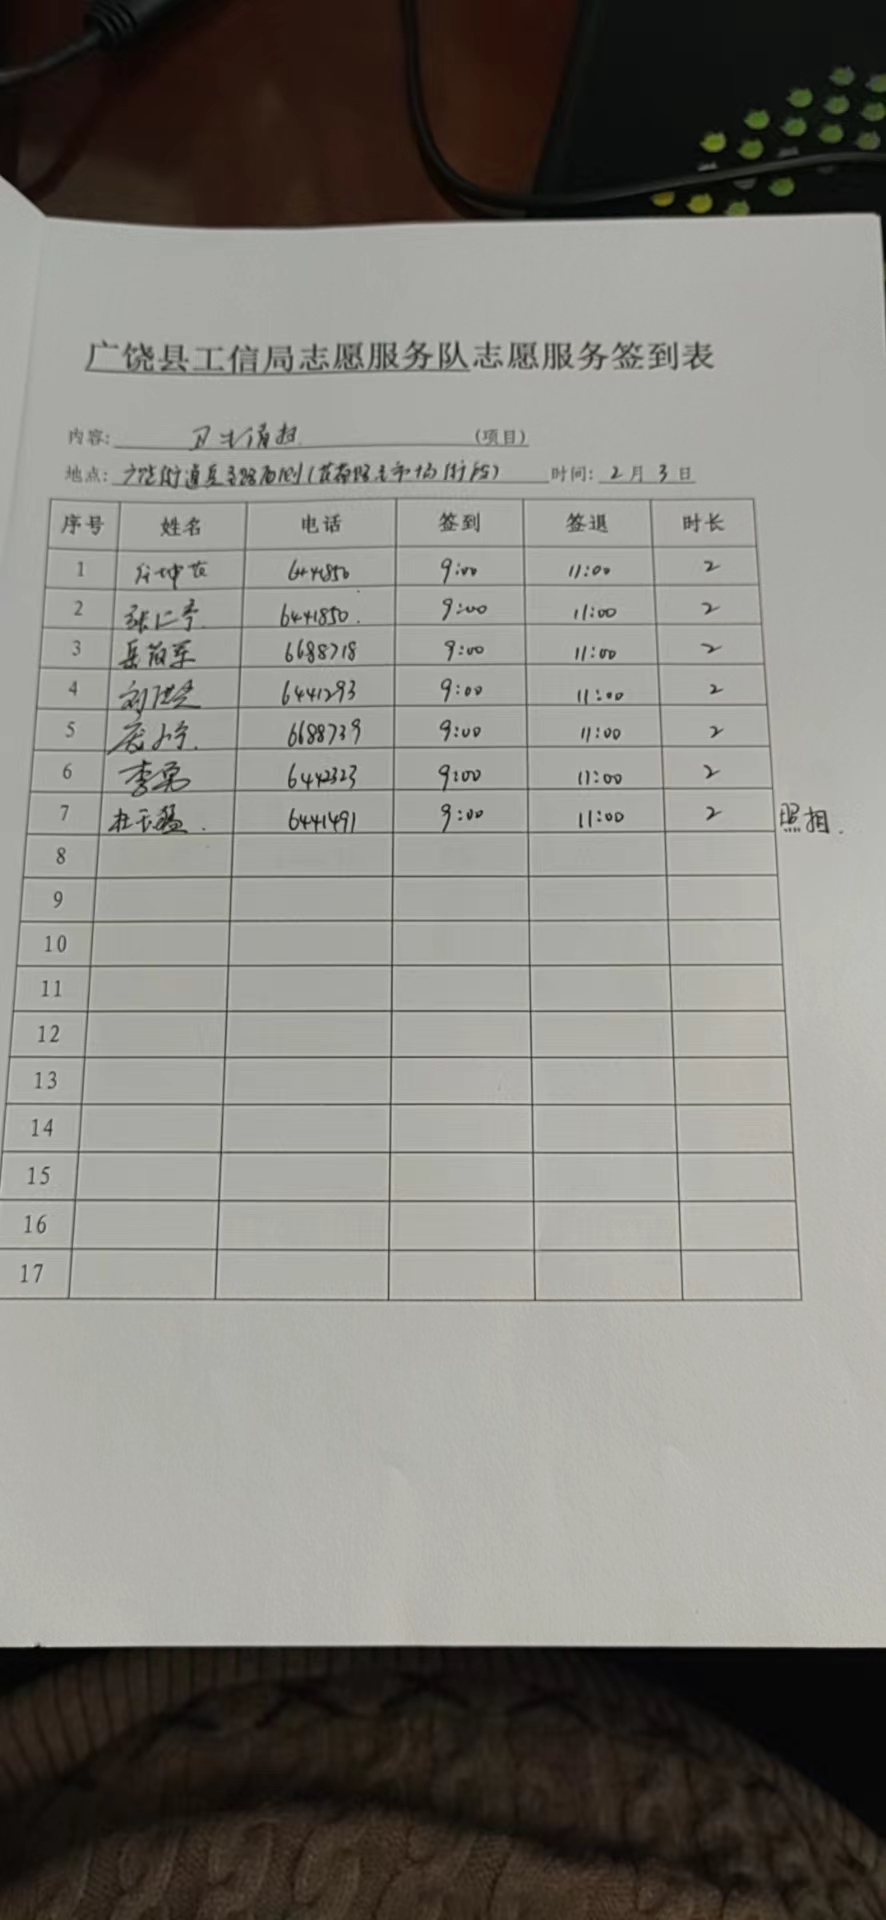 广饶县工信局志愿服务队志愿服务签到表
内容: 卫生清扫 (项目)
地点: 广饶街道 时间: 2月3日
序号 姓名 电话 签到 签退 时长
1 6441850 9:00 11:00 2
2 张仁亭 6441850 9:00 11:00 2
3 6688718 9:00 11:00 2
4 6441293 9:00 11:00 2
5 6688739 9:00 11:00 2
6 李勇 6442323 9:00 11:00 2
7 6441491 9:00 11:00 2 照相.
8
9
10
11
12
13
14
15
16
17